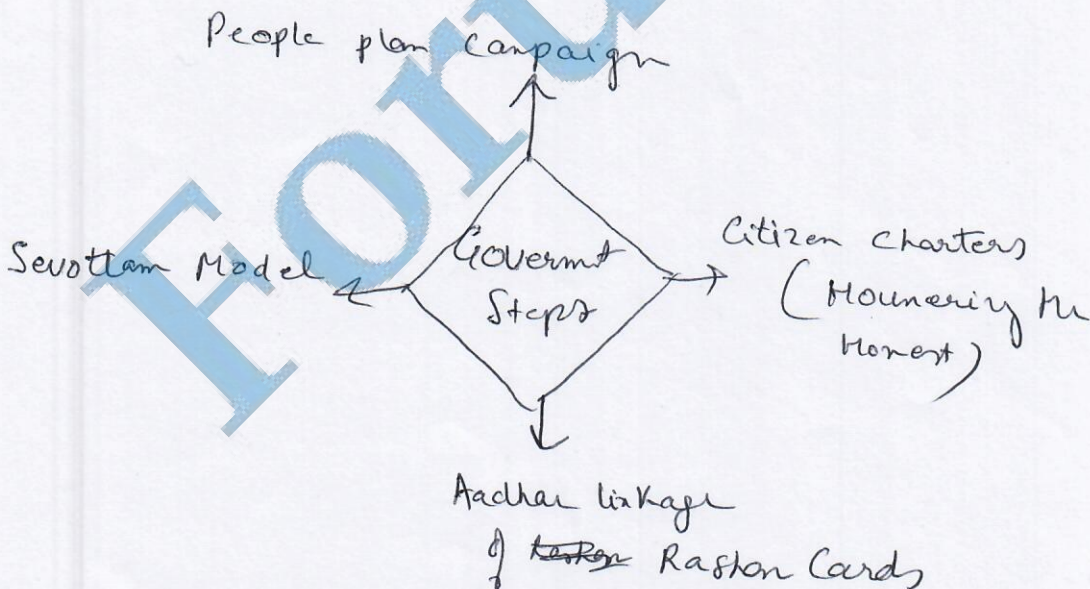 People plan Campaign
Sevottam Model
Govermt
Steps
Citizen Charters
(Hounering the
Honest)
Aadhar linkage
of Rashon Cards
For